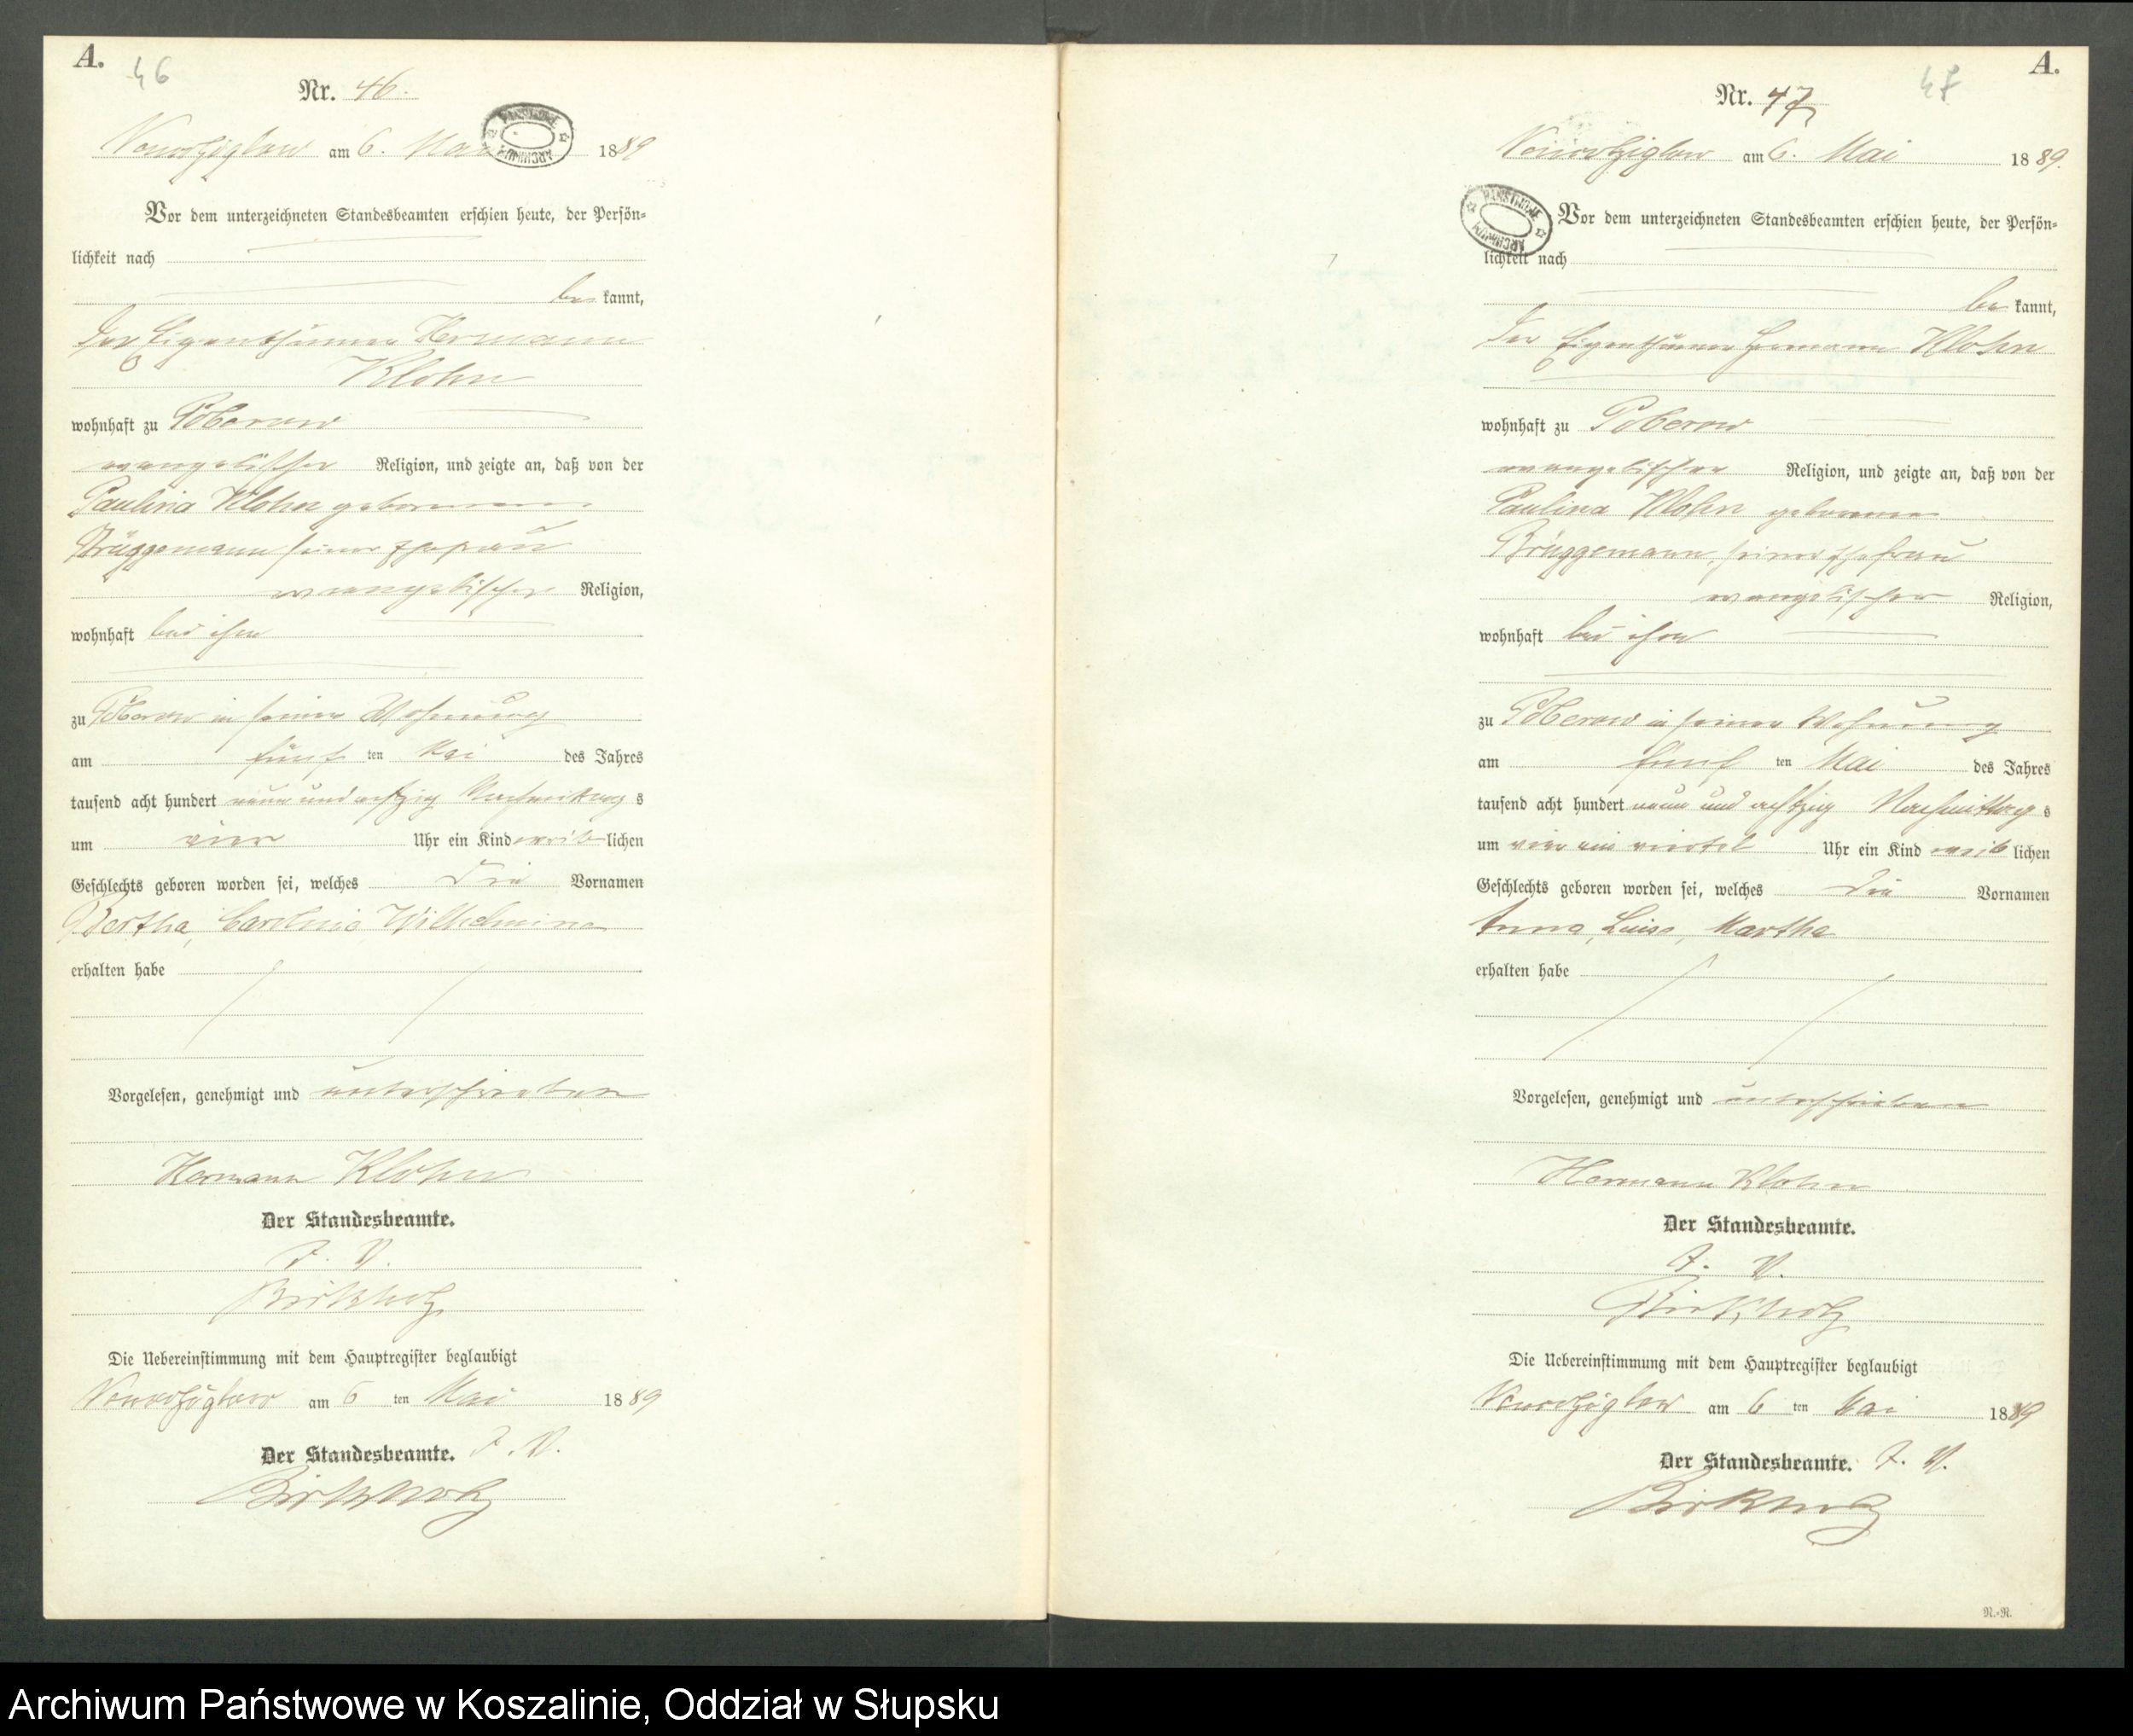 A.
46
Nr. 46.
am 6. Mai 1889
PAŃSTWOWE ARCHIWUM
Vor dem unterzeichneten Standesbeamten erschien heute, der Persön=
lichkeit nach
be kannt,
der Eigenthümer Hermann
Klohn
wohnhaft zu Poberow
evangelischer Religion, und zeigte an, daß von der
Paulina Klohn geborenen
Brüggemann seiner Ehefrau
evangelischer Religion,
wohnhaft bei ihm
zu Poberow in seiner Wohnung
am fünf ten Mai des Jahres
tausend acht hundert neun und achtzig Nachmittag s
um vier Uhr ein Kind weib lichen
Geschlechts geboren worden sei, welches die Vornamen
Bertha, Carolina Wilhelmina
erhalten habe
Vorgelesen, genehmigt und unterschrieben
Hermann Klohn
Der Standesbeamte.
J. V.
Birkholz
Die Uebereinstimmung mit dem Hauptregister beglaubigt
am 6 ten Mai 1889
Der Standesbeamte. J. V.
Birkholz
A.
47
Nr. 47
am 6. Mai 1889.
PAŃSTWOWE ARCHIWUM
Vor dem unterzeichneten Standesbeamten erschien heute, der Persön=
lichkeit nach
be kannt,
der Eigenthümer Hermann Klohn
wohnhaft zu Poberow
evangelischer Religion, und zeigte an, daß von der
Paulina Klohn geborenen
Brüggemann, seiner Ehefrau
evangelischer Religion,
wohnhaft bei ihm
zu Poberow in seiner Wohnung
am fünf ten Mai des Jahres
tausend acht hundert neun und achtzig Nachmittag s
um vier ein viertel Uhr ein Kind weib lichen
Geschlechts geboren worden sei, welches die Vornamen
Anna, Luise, Martha
erhalten habe
Vorgelesen, genehmigt und unterschrieben
Hermann Klohn
Der Standesbeamte.
J. V.
Birkholz
Die Uebereinstimmung mit dem Hauptregister beglaubigt
am 6 ten Mai 1889
Der Standesbeamte. J. V.
Birkholz
N.-N.
Archiwum Państwowe w Koszalinie, Oddział w Słupsku